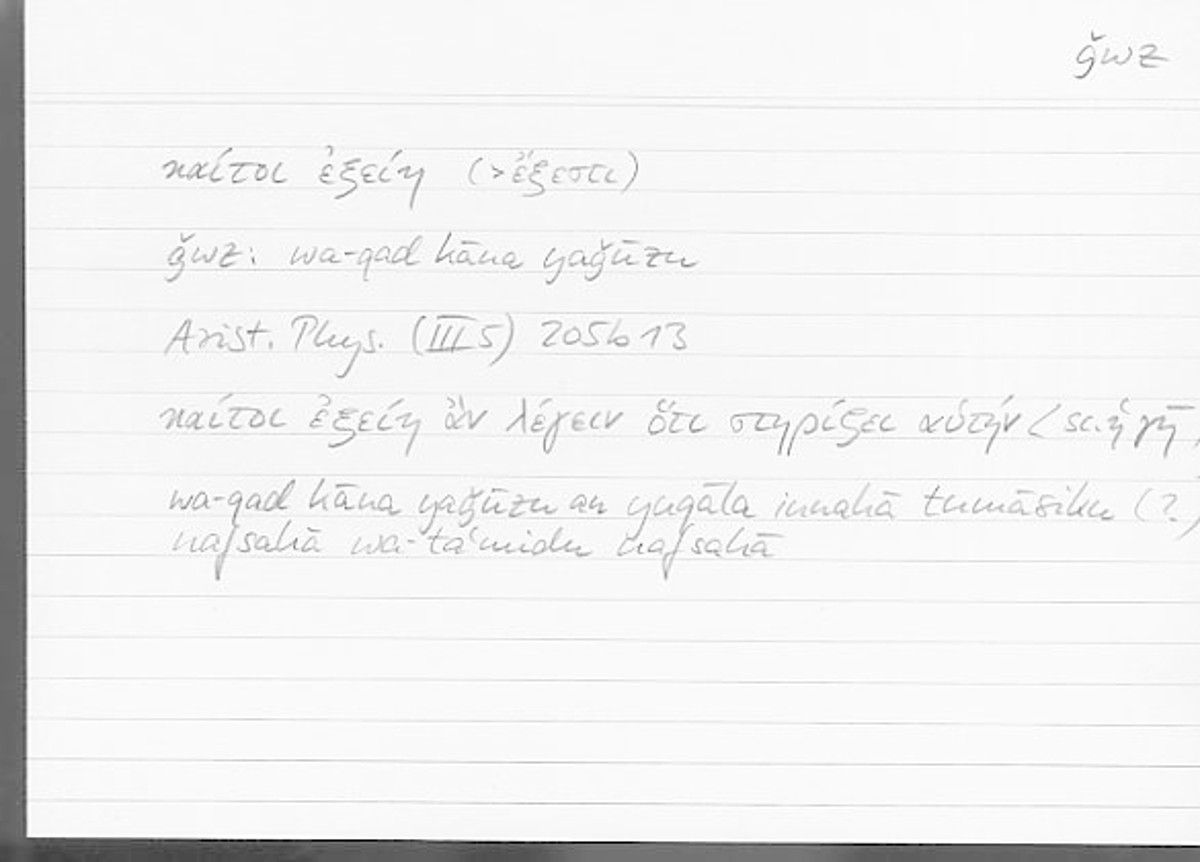 ǧwz
καίτοι ἐξείη (>ἔξεστι)
ǧwz: wa-qad kāna yaǧūzu
Arist. Phys. (III 5) 205b13
καίτοι ἐξείη ἂν λέγειν ὅτι στηρίζει αὑτήν (sc. ἡ γῆ)
wa-qad kāna yaǧūzu an yuqāla innahā tumāsiku (?)
nafsahā wa-taʿmidu nafsahā